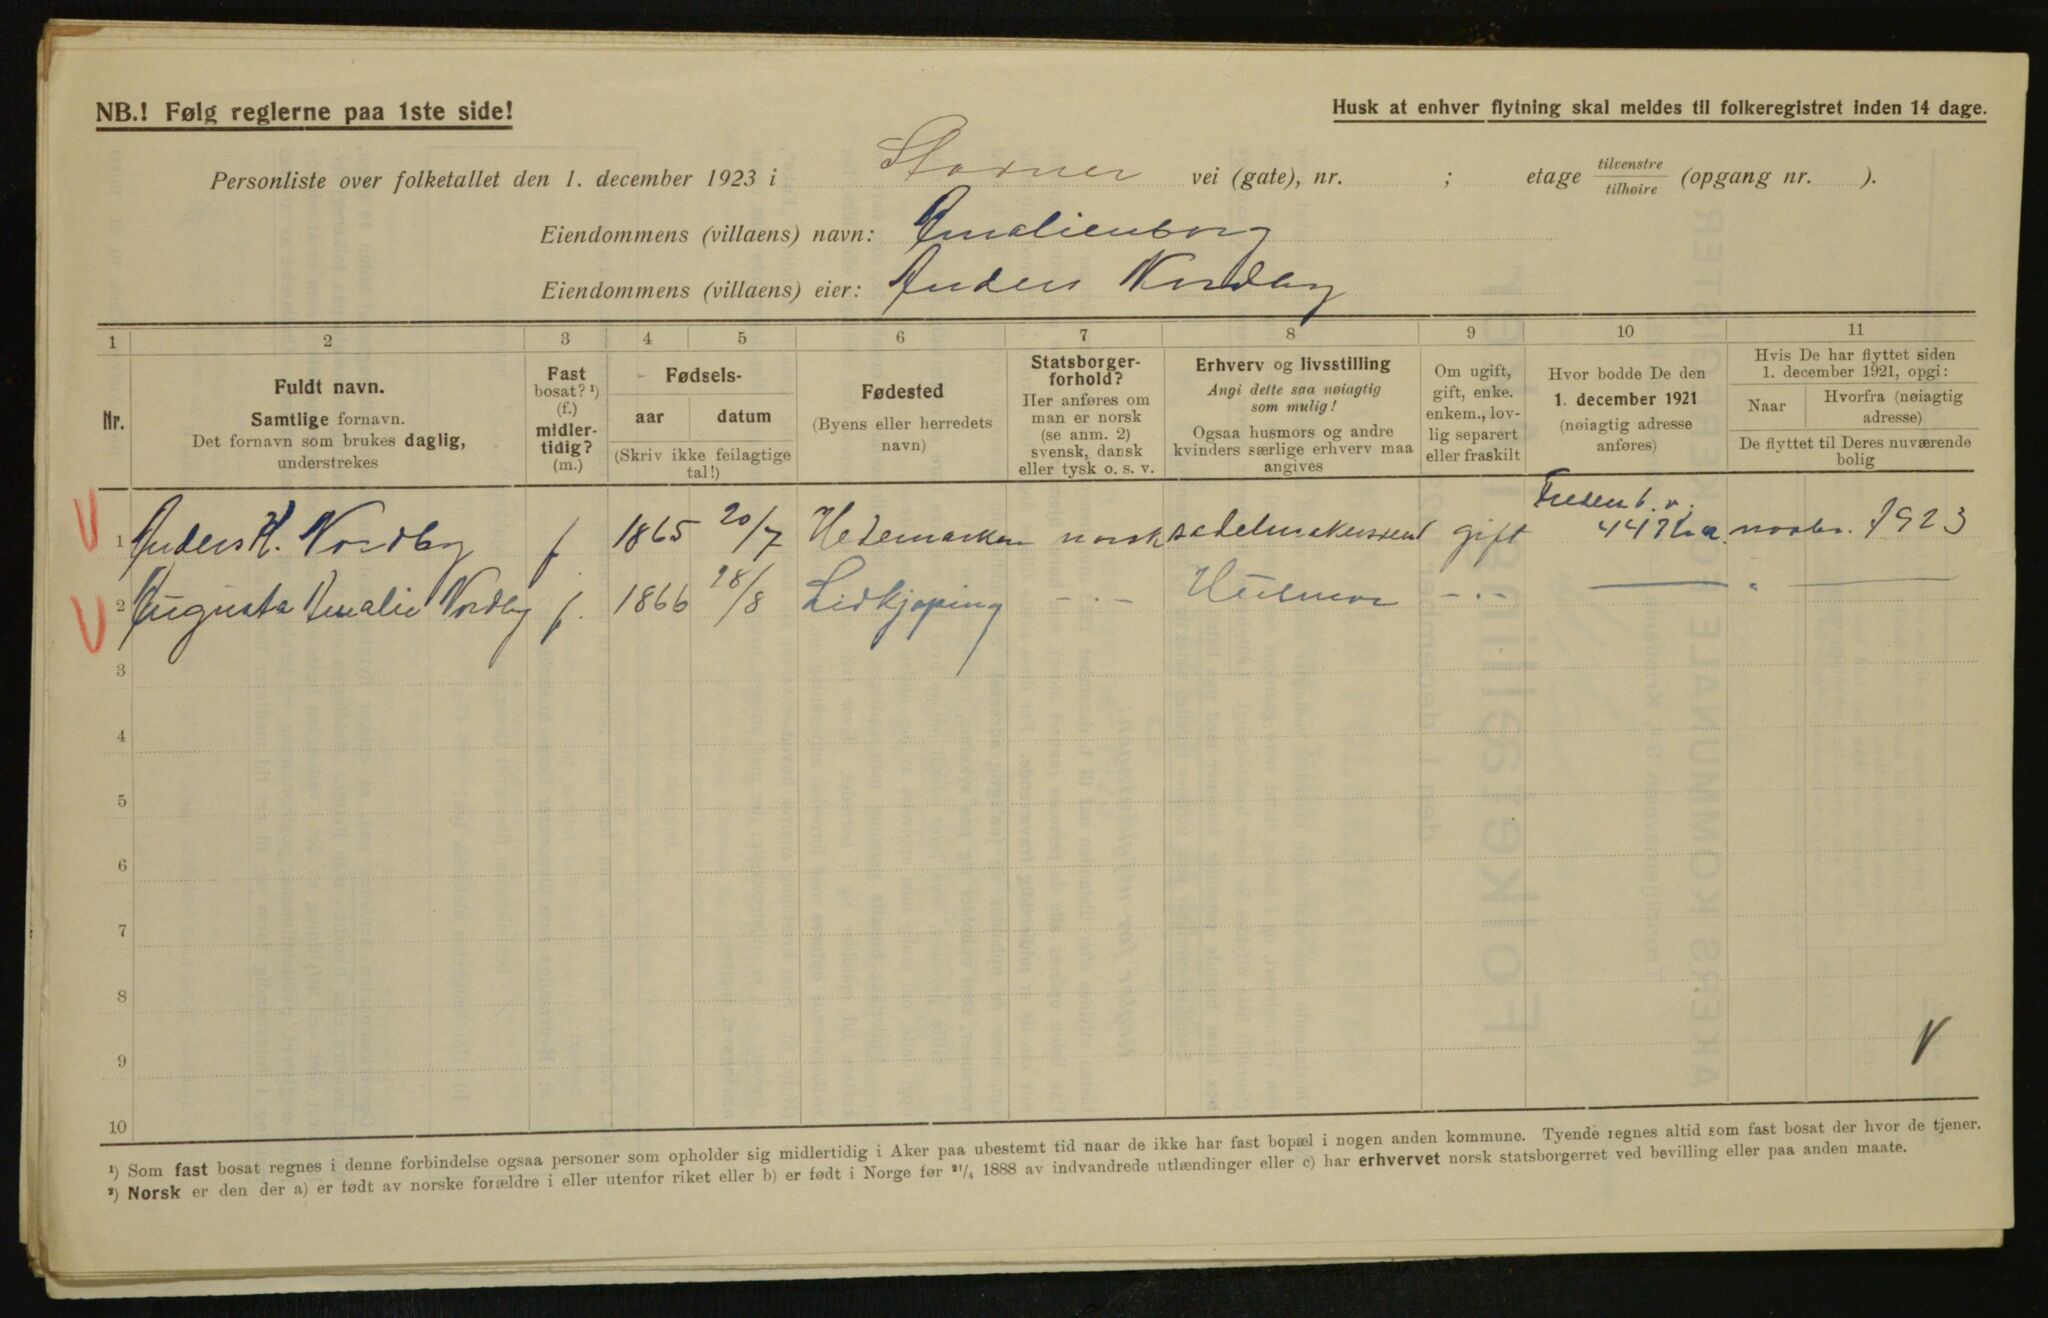 NB.! Følg reglerne paa 1ste side!
Husk at enhver flytning skal meldes til folkeregistret inden 14 dage.
Personliste over folketallet den 1. december 1923 i Stovner vei (gate), nr. ; etage tilvenstre / tilhøire (opgang nr. ).
Eiendommens (villaens) navn: Amalienborg
Eiendommens (villaens) eier: Anders Nordby
1 2 3 4 5 6 7 8 9 10 11
Nr.
Fuldt navn.
Samtlige fornavn.
Det fornavn som brukes daglig,
understrekes
Fast
bosat? ¹)
(f.)
midler-
tidig?
(m.)
Fødsels-
aar datum
(Skriv ikke feilagtige
tal!)
Fødested
(Byens eller herredets
navn)
Statsborger-
forhold?
Her anføres om
man er norsk
(se anm. 2)
svensk, dansk
eller tysk o. s. v.
Erhverv og livsstilling
Angi dette saa nøiagtig
som mulig!
Ogsaa husmors og andre
kvinders særlige erhverv maa
angives
Om ugift,
gift, enke.
enkem., lov-
lig separert
eller fraskilt
Hvor bodde De den
1. december 1921
(nøiagtig adresse
anføres)
Hvis De har flyttet siden
1. december 1921, opgi:
Naar
Hvorfra (nøiagtig
adresse)
De flyttet til Deres nuværende
bolig
1 Anders H. Nordby f 1865 20/7 Hedemarken norsk sadelmakersvend gift 44 novbr. 1923
2 Augusta Amalie Nordby f. 1866 28/8 Lidkjøping — . — Husmor — . — — " —
3
4
5
6
7
8
9
10
¹) Som fast bosat regnes i denne forbindelse ogsaa personer som opholder sig midlertidig i Aker paa ubestemt tid naar de ikke har fast bopæl i nogen anden kommune. Tyende regnes altid som fast bosat der hvor de tjener.
²) Norsk er den der a) er født av norske forældre i eller utenfor riket eller b) er født i Norge før ²¹/₄ 1888 av indvandrede utlændinger eller c) har erhvervet norsk statsborgerret ved bevilling eller paa anden maate.